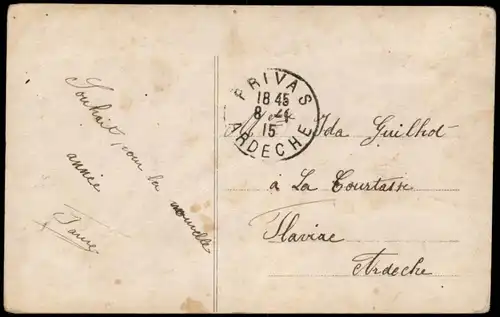 Souhait pour la nouvelle
année
Faure
PRIVAS
18 45
15
ARDECHE
Ida Guilhot
à La Courtasse
Flaviac
Ardèche